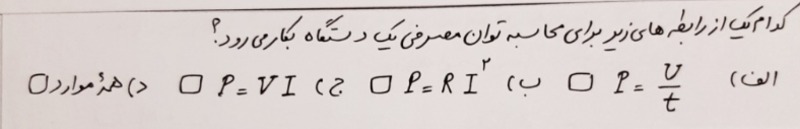 کدام یک از رابطه های زیر برای محاسبه توان مصرفی یک دستگاه بکار می رود؟
الف) P = U/t □ ب) P = RI² □ ج) P = VI □ د) همهٔ موارد □